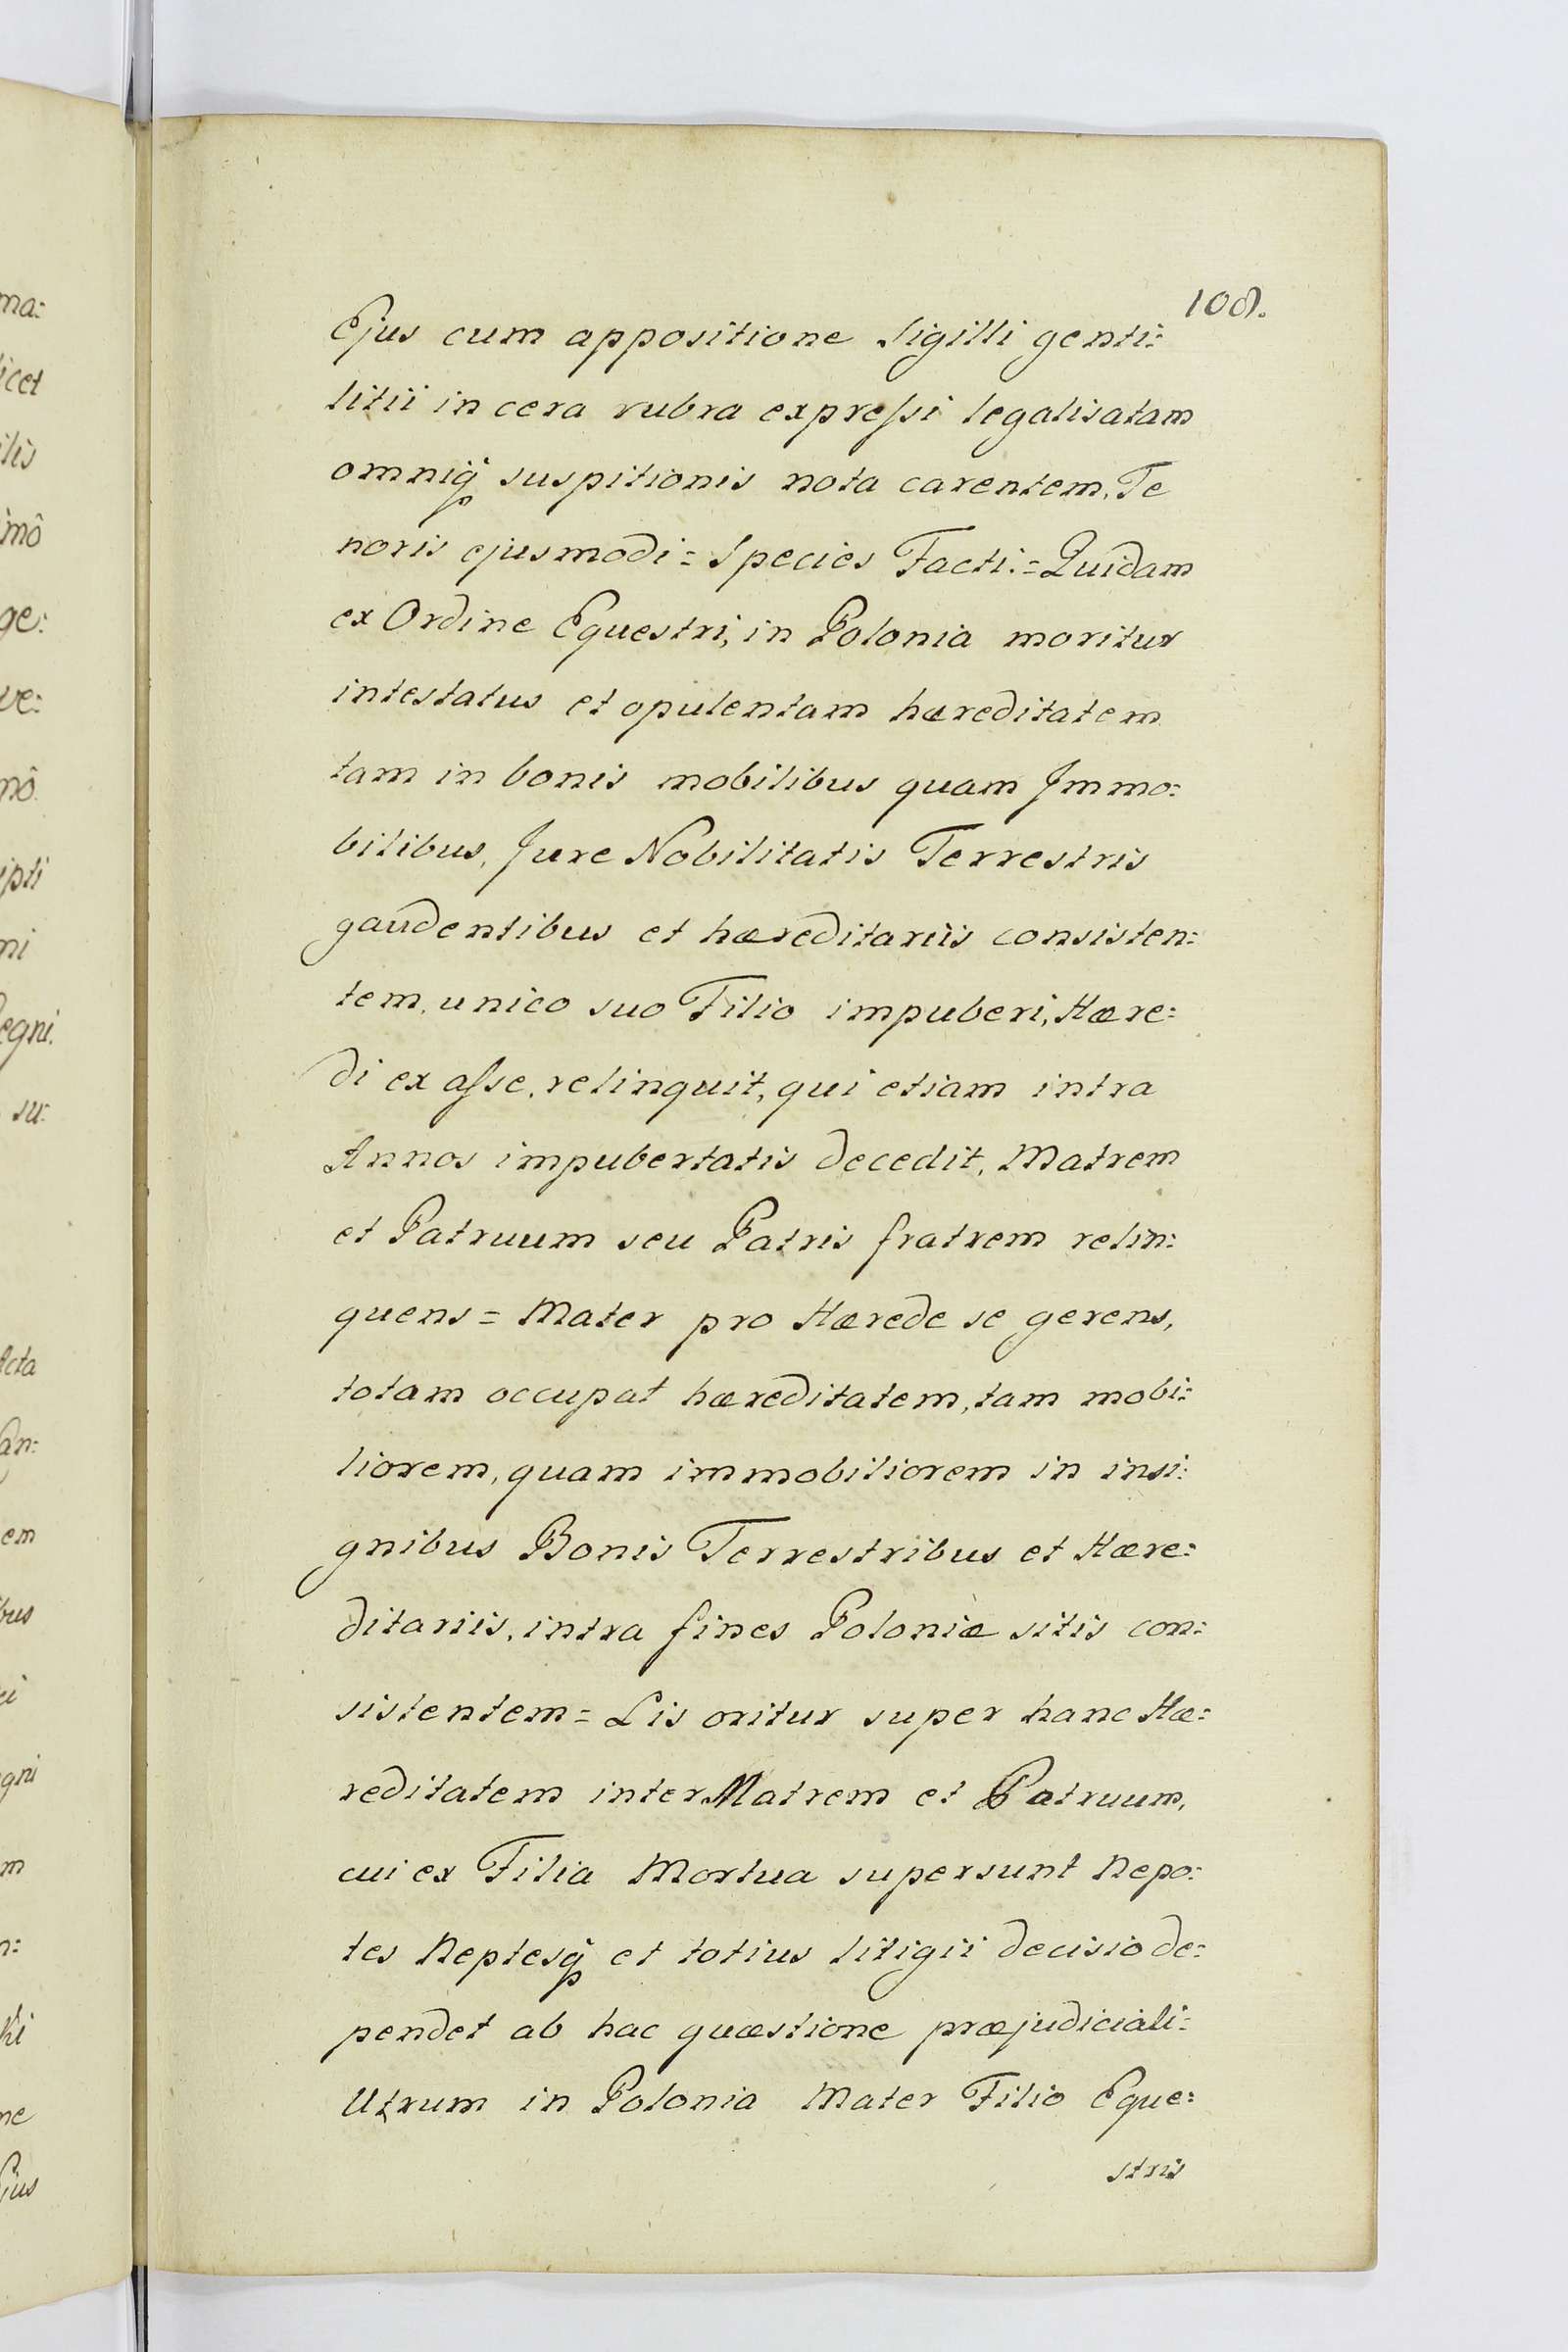 108.
Ejus cum appositione Sigilli genti:
litii in cera rubra expreſsi legalisatam
omniq̃ suspitionis nota carentem, Te
noris ejusmodi = Species Facti: = Quidam
ex Ordine Equestri, in Polonia moritur
intestatus et opulentam hæreditatem
tam in bonis mobilibus quam Immo:
bilibus, Jure Nobilitatis Terrestris
gaudentibus et hæreditariis consisten:
tem, unico suo Filio impuberi, Hære:
di ex aſse, relinquit, qui etiam intra
Annos impubertatis decedit, Matrem
et Patruum seu Patris fratrem relin:
quens = Mater pro Hærede se gerens,
totam occupat hæreditatem, tam mobi:
liorem, quam immobiliorem in insi:
gnibus Bonis Terrestribus et Hære:
ditariis, intra fines Poloniæ sitis con:
sistentem = Lis oritur super hanc Hæ:
reditatem inter Matrem et Patruum,
cui ex Filia Mortua supersunt Nepo:
tes Neptesq̃ et totius litigii decisio de:
pendet ab hac quæstione præjudiciali:
Utrum in Polonia Mater Filio Eque:
stris
ma:
icet
ilis
imô
ge:
ve:
mô
ipti
ni
egni.
su:
Acta
an:
em
bus
ei
gni
m
n:
ki
ne
Ejus